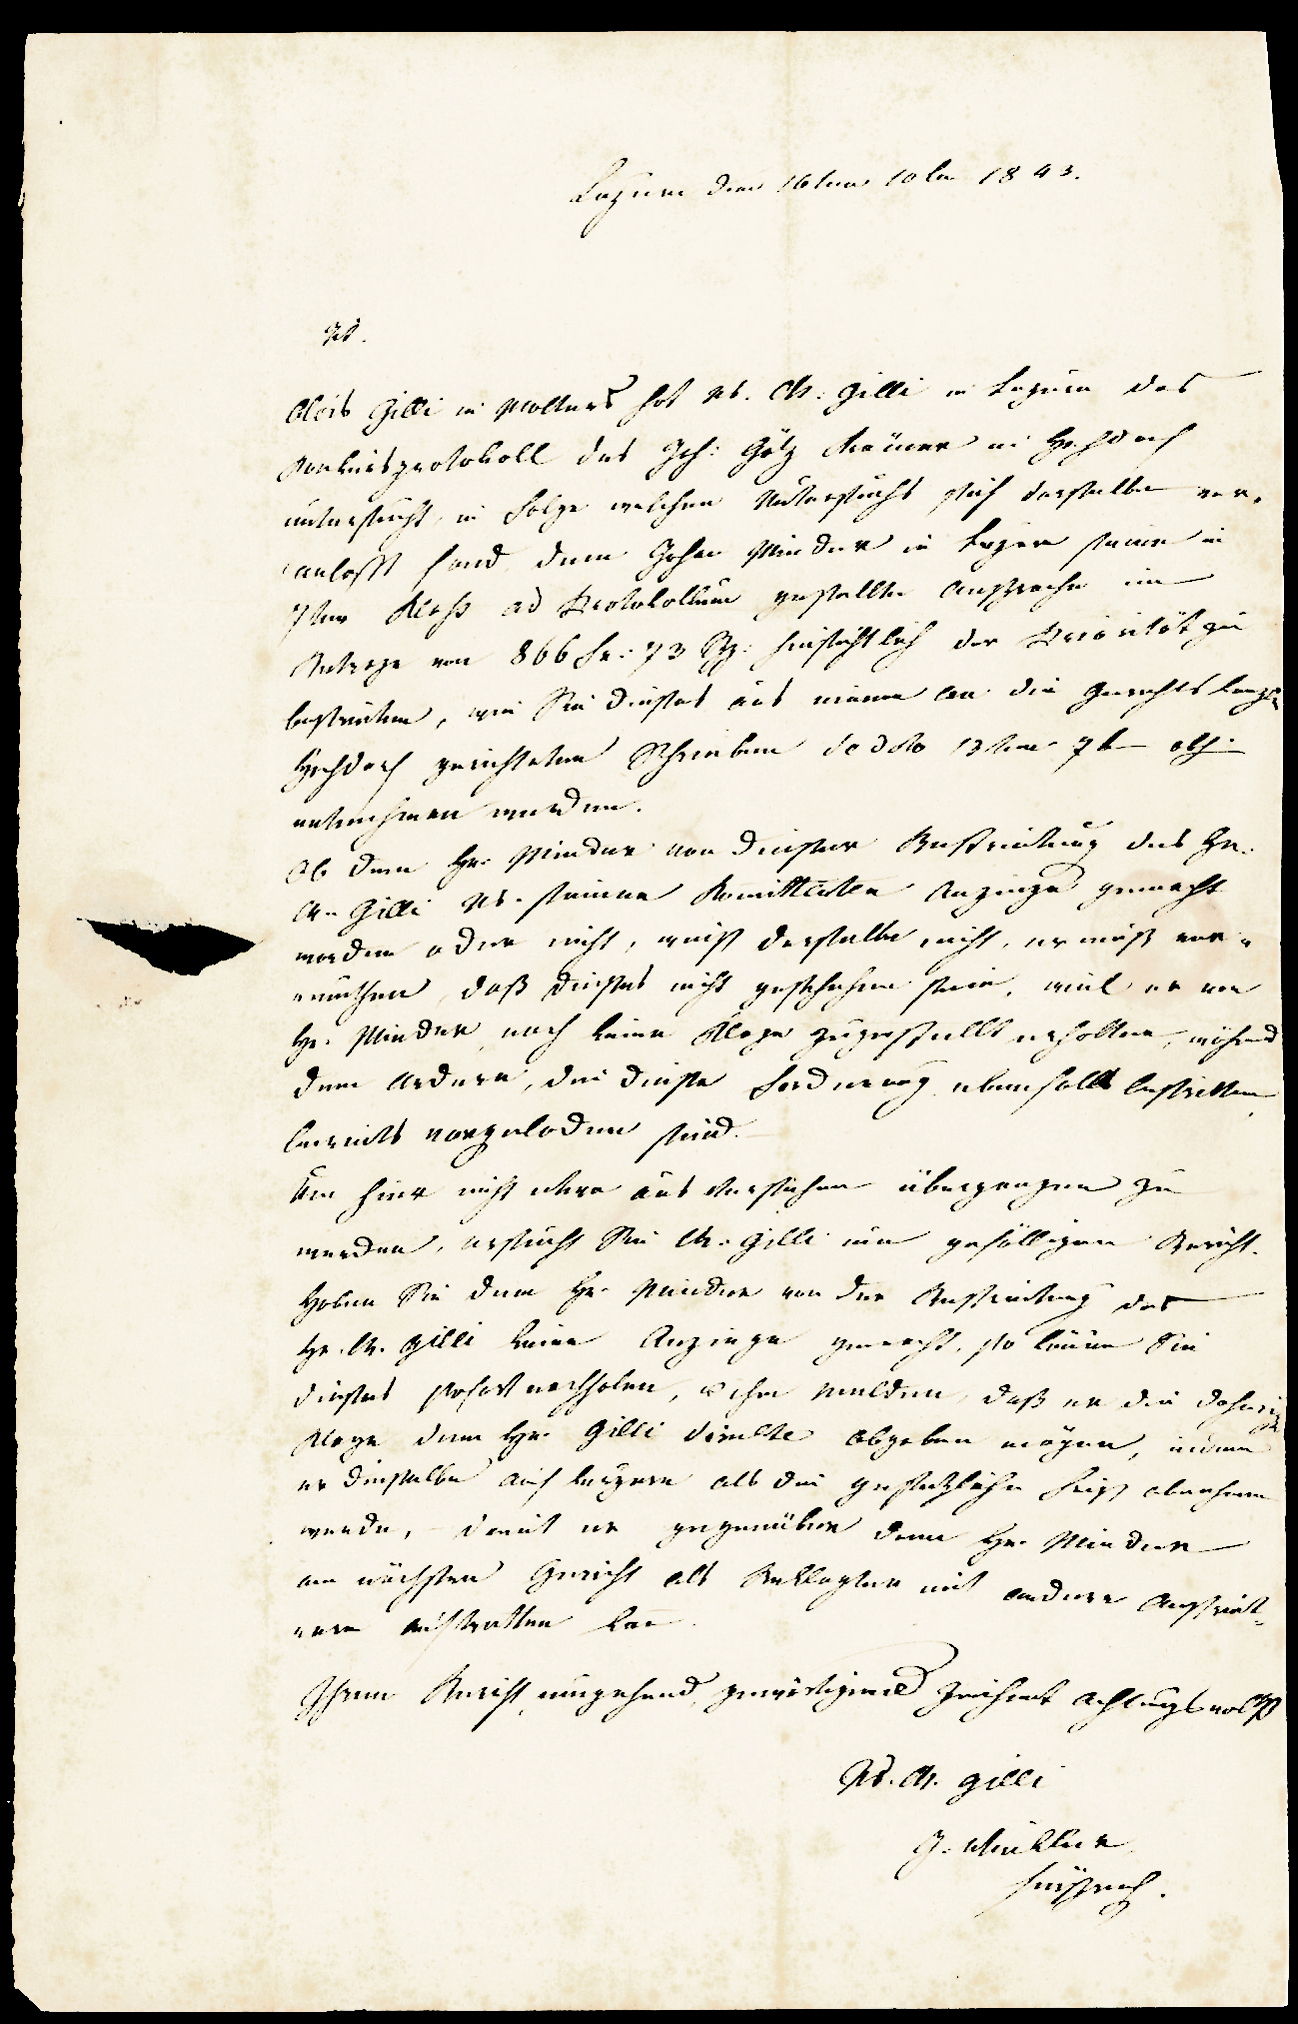 Luzern den 16ten 10br 1843.
Tit.
Alois Gilli in Malters hat Ns. A: Gilli in Luzern das
Konkursprotokoll des Jos: Götz Krämer in Hochdorf
untersucht, in Folge welchen Untersuchs sich derselbe ver¬
anlasst fand dem Johan Minder in Luzern seine in
7ter Klass ad Protokollum gestellte Ansprache im
Betrage von 866 Fr: 73 Rp: hinsichtlich der Priorität zu
bestreiten, wie Sie dieses aus einem an die Gerichtskanzlei
Hochdorf gerichteten Schreiben de dto 13ten
entnehmen werden.
Ob dem Hr. Minder von dieser Bestreitung des Hr.
A. Gilli Ns. seiner Komittenten Anzeige gemacht
worden oder nicht, weiß derselbe nicht, er muß ver¬
muthen, daß dieses nicht geschehen seie, weil er von
Hr. Minder noch keine Klage zugestellt erhalten, währnd
dem Andere, die diese Forderung ebenfalls bestritten,
bereits vorgeladen sind.
Um hier nicht etwa aus Versehen übergangen zu
werden, ersucht Sie A. Gilli um gefälligen Bericht.
Haben Sie dem Hr. Minder von der Bestreitung des
Hr. A. Gilli keine Anzeige gemacht, so könne Sie
dieses sofort nachholen, u ihm melden, daß er die daherige
Klage dem Hr. Gilli direkte abgeben möge, indem
er dieselbe auf kürzere als die gesetzliche Frist abnehmen
werde, – damit er gegenüber dem Hr. Minder
am nächsten Gericht als Beklagter mit andern Anstreit¬
ern auftretten kan.
Ihren Bericht umgehend gewärtigend zeichnet achtungsvollst
Ns. A. Gilli
J. Winkler,
Fürsprech.